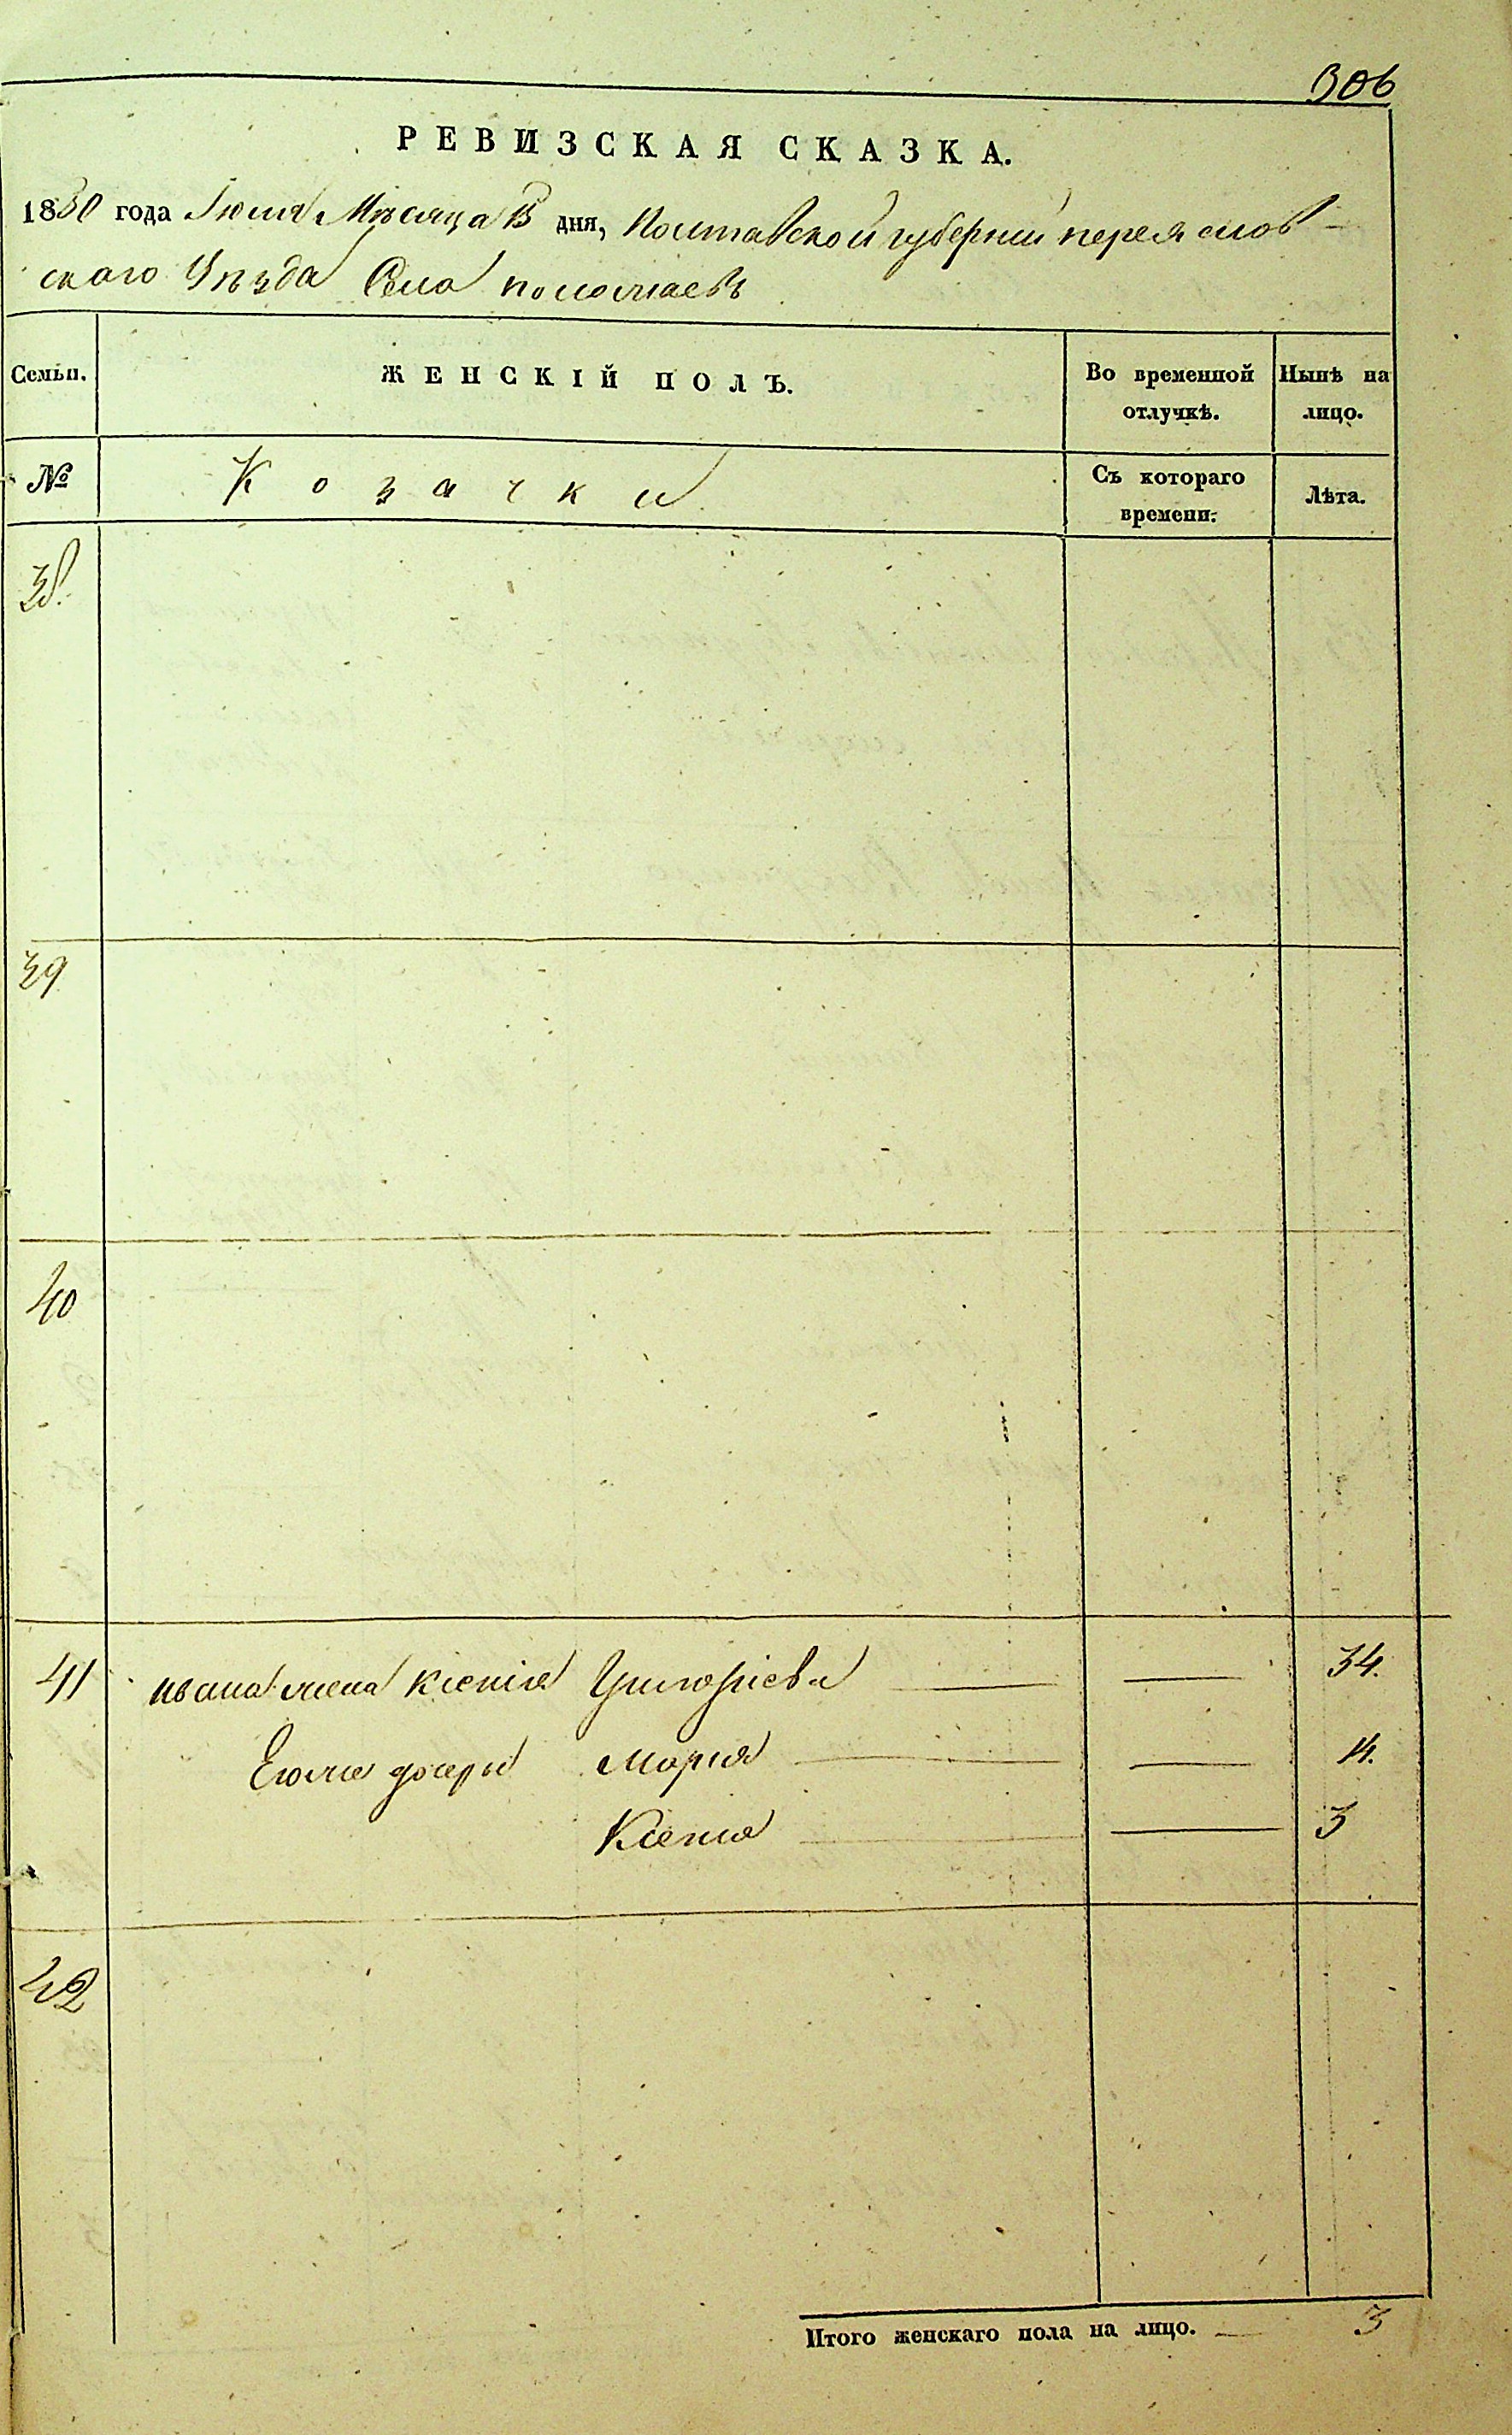 306
РЕВИЗСКАЯ СКАЗКА.
1850 года Іюля Мѣсяца 15 дня, Полтавской губерніи переяслов-
скаго Уѣзда Села положаевъ
Семьи. ЖЕНСКІЙ ПОЛЪ. Во временной отлучкѣ. Нынѣ на лицо.
№ Козачки Съ котораго времени. Лѣта.
38.
39
40
41 ивана жена Ксенія Григоріева — — 34.
Егоже дочери Марія — — 14.
Ксенія — — 3
42
Итого женскаго пола на лицо. — 3